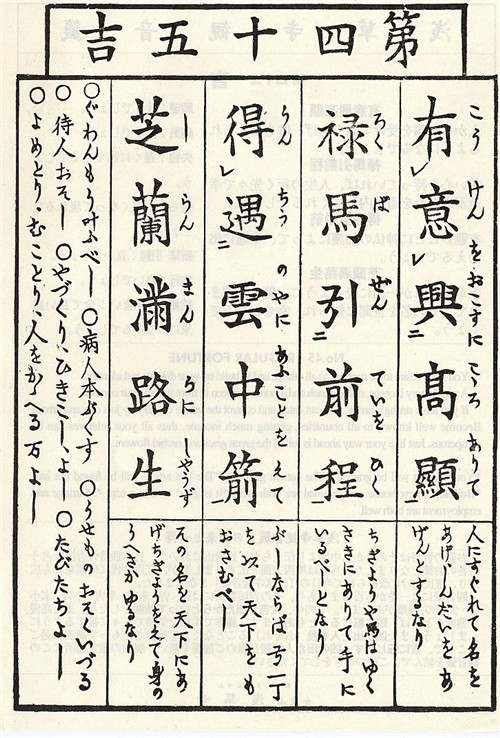 第四十五吉
こうけんをおこすにこゝろあり
有意興髙顯
人にすぐれて名を
あげしんだいをあ
げんとするなり
ろくばぜんていひく
禄馬引前程
ちぎようや馬はゆく
さきにありて手に
いるべしとなり
うんちうのやにあふことをえて
得遇雲中箭
ぶしならば弓一丁
を以天下をも
おさむべし
しらんきんろにしやうず
芝蘭滿路生
その名を天下にあ
げちぎようもふえて身の
うへさかゆるなり
○ぐわんもう叶ふべし ○病人本ぷくす ○うせものおそくいづる
○待人おそし ○やづくり、ひきこし、よし ○たびたちよし
○よめとり、むことり、人をかゝへる万よし